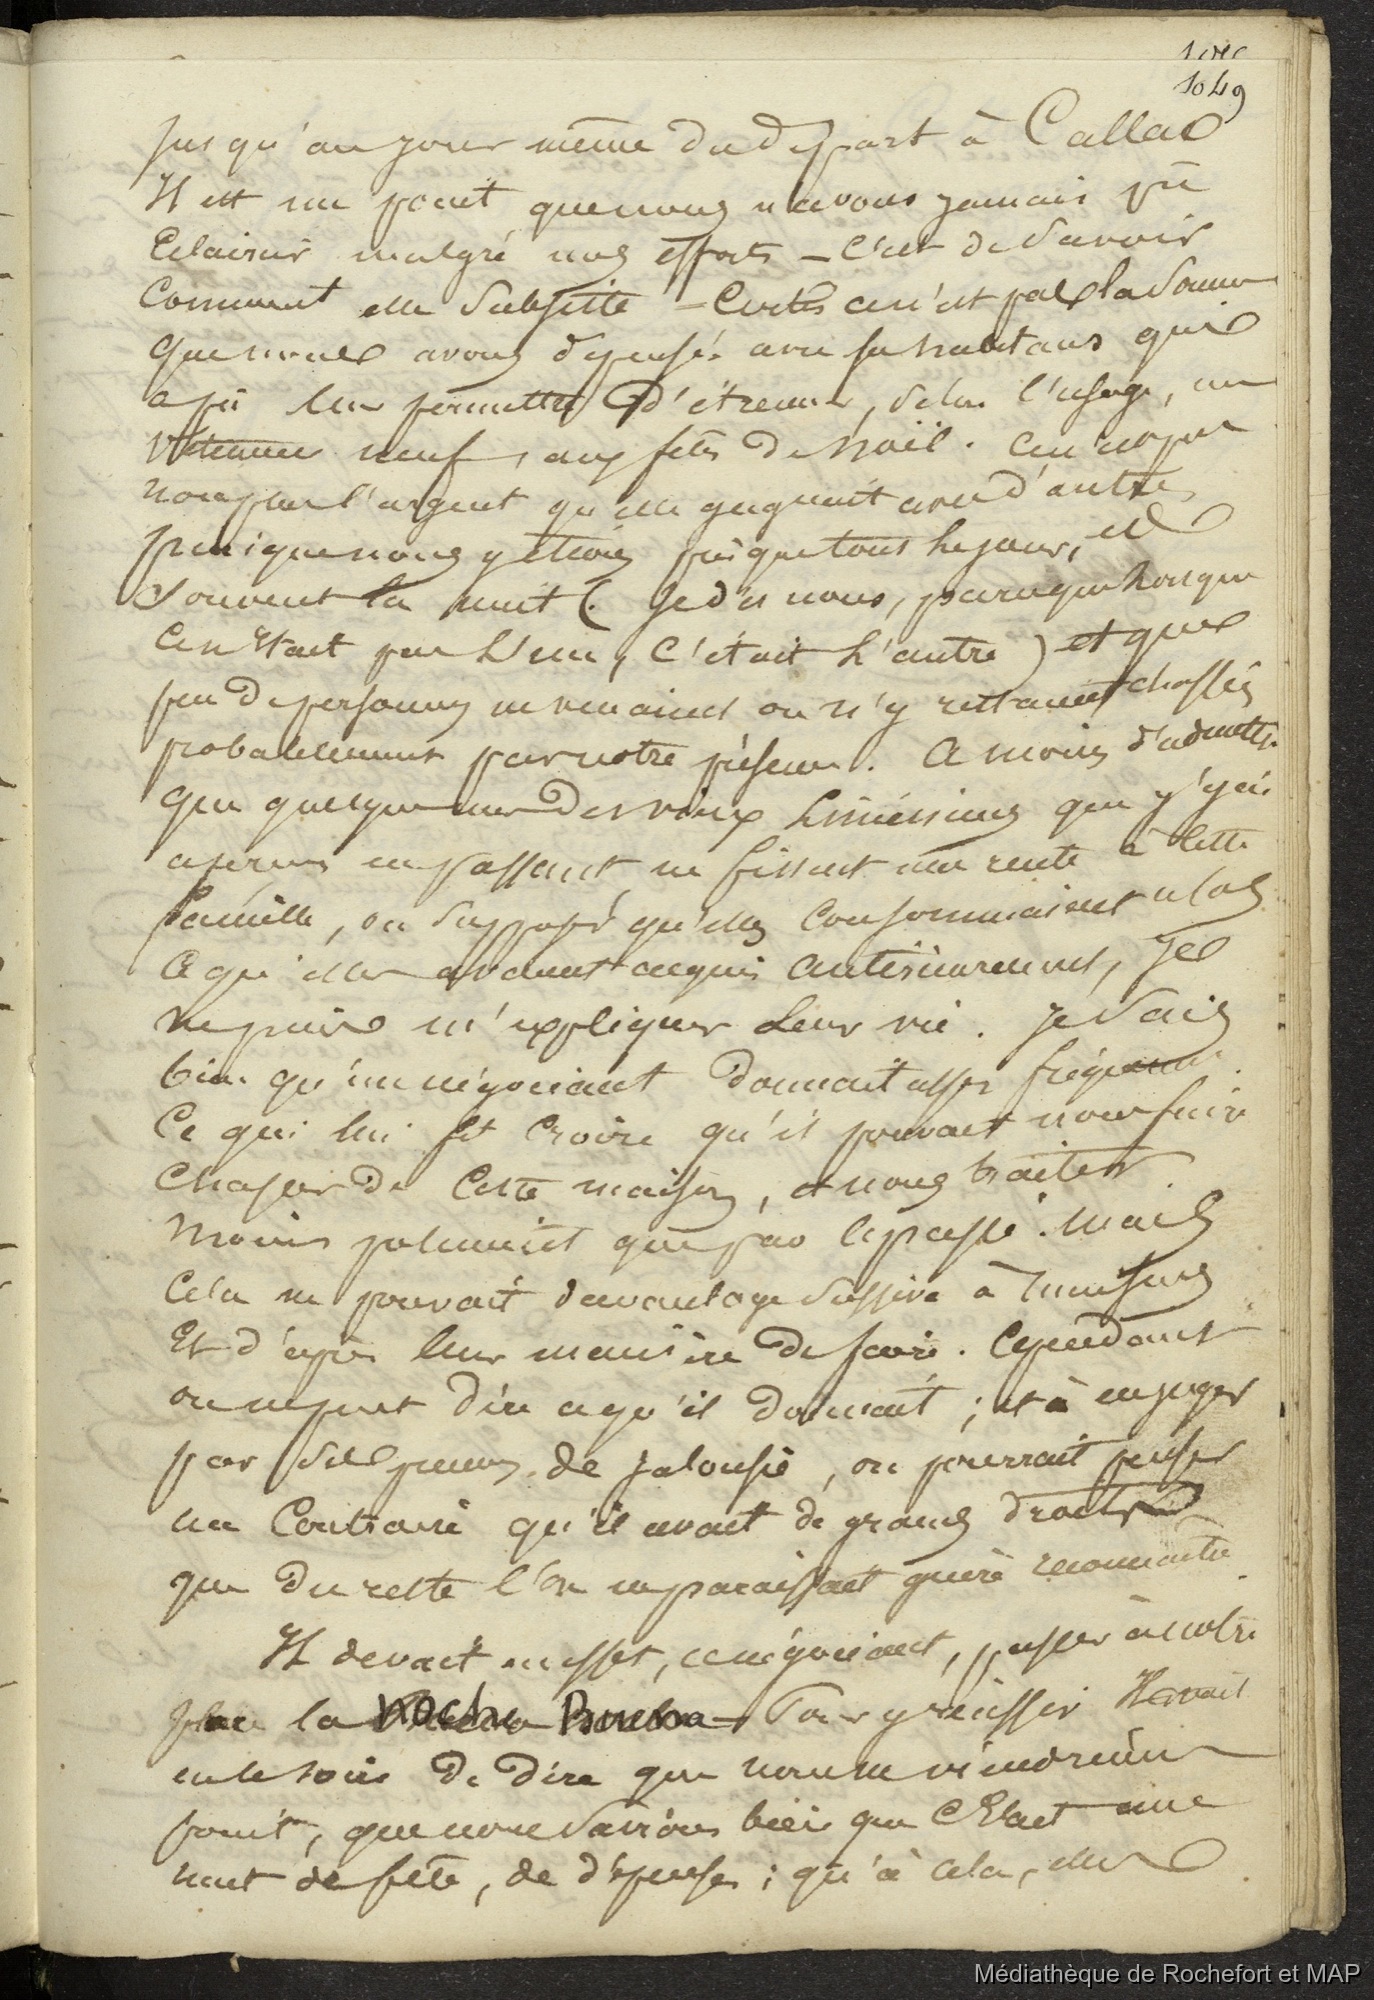 1049
jusqu'au jour même du départ à Callao
Il est un point que nous n'avons jamais pû
Eclaircir malgré nos efforts – C'est de savoir
Comment elle subsiste – Certes ce n'est pas la somme
Que nous avons dépensé avec habitans qui
a pû leur permettre d'étrenner, selon l'usage, un
neuf, aux fêtes de Noël. Ce n'est pas
non plus l'argent qu'elle gagnait avec d'autres
puisque nous y étions presque tous les jours, et
souvent la nuit (Je dis nous, parceque lorsque
Ce n'était pas l'un, C'était l'autre) et que
peu de personnes ne venaient ou n'y restaient chassés
probablement par notre présence. A moins d'admettre
que quelques uns des vieux que j'y ai
aperçus en passant, ne fissent une rente à cette
famille, ou supposé qu'elles consommaient alors
Ce qu'elles avaient acquis antérieurement, Je
ne puis m'expliquer leur vie. Je sais
bien qu'un négociant donnait assez
Ce qui lui fit croire qu'il pouvait nous faire
Chasser de Cette maison, et nous traiter
Moins poliment que par le passé. Mais
Cela ne pouvait davantage suffire à
Et d'après leur manière de faire. Cependant
on ne peut dire ce qu'il donnait ; et à en juger
par ses de jalousie, on pourrait penser
au Contraire qu'il avait de grands droits
que du reste l'on ne paraissait guère reconnaître.
Il devait en effet, ce négociant, passer à notre
place la noche Buena – Pour y réussir Il avait
eu le soin de dire que nous ne viendrions
point, que nous savions bien que C'Etait une
nuit de fête, de dépenses ; qu'à cela, elles
Médiathèque de Rochefort et MAP